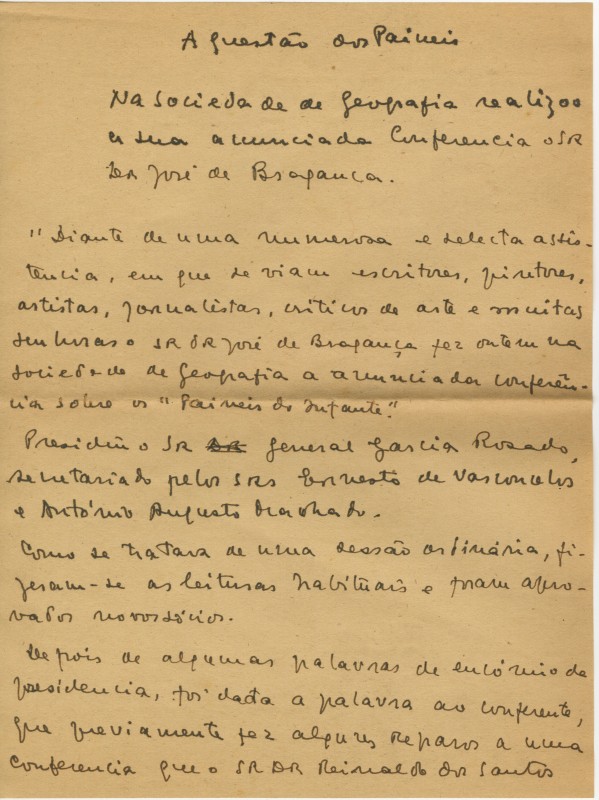 A questão dos Paineis
Na Sociedade de Geografia realizou
a sua anunciada Conferencia o SR
DR José de Bragança.
"Diante de uma numerosa e selecta assis-
tência, em que se viam escritores, pintores,
artistas, jornalistas, criticos de arte e muitas
senhoras o SR DR José de Bragança fez ontem na
Sociedade de Geografia a anunciada conferên-
cia sobre os "Paineis do Infante."
Presidiu o SR DR General Garcia Rosado,
secretariado pelos SRS Ernesto de Vasconcelos
e António Augusto Machado.
Como se tratava de uma sessão ordinária, fi-
zeram-se as leituras habituais e foram apro-
vados novos sócios.
Depois de algumas palavras de encómio da
presidencia, foi dada a palavra ao conferente,
que previamente fez algures reparos a uma
Conferencia que o SR DR Reinaldo dos Santos